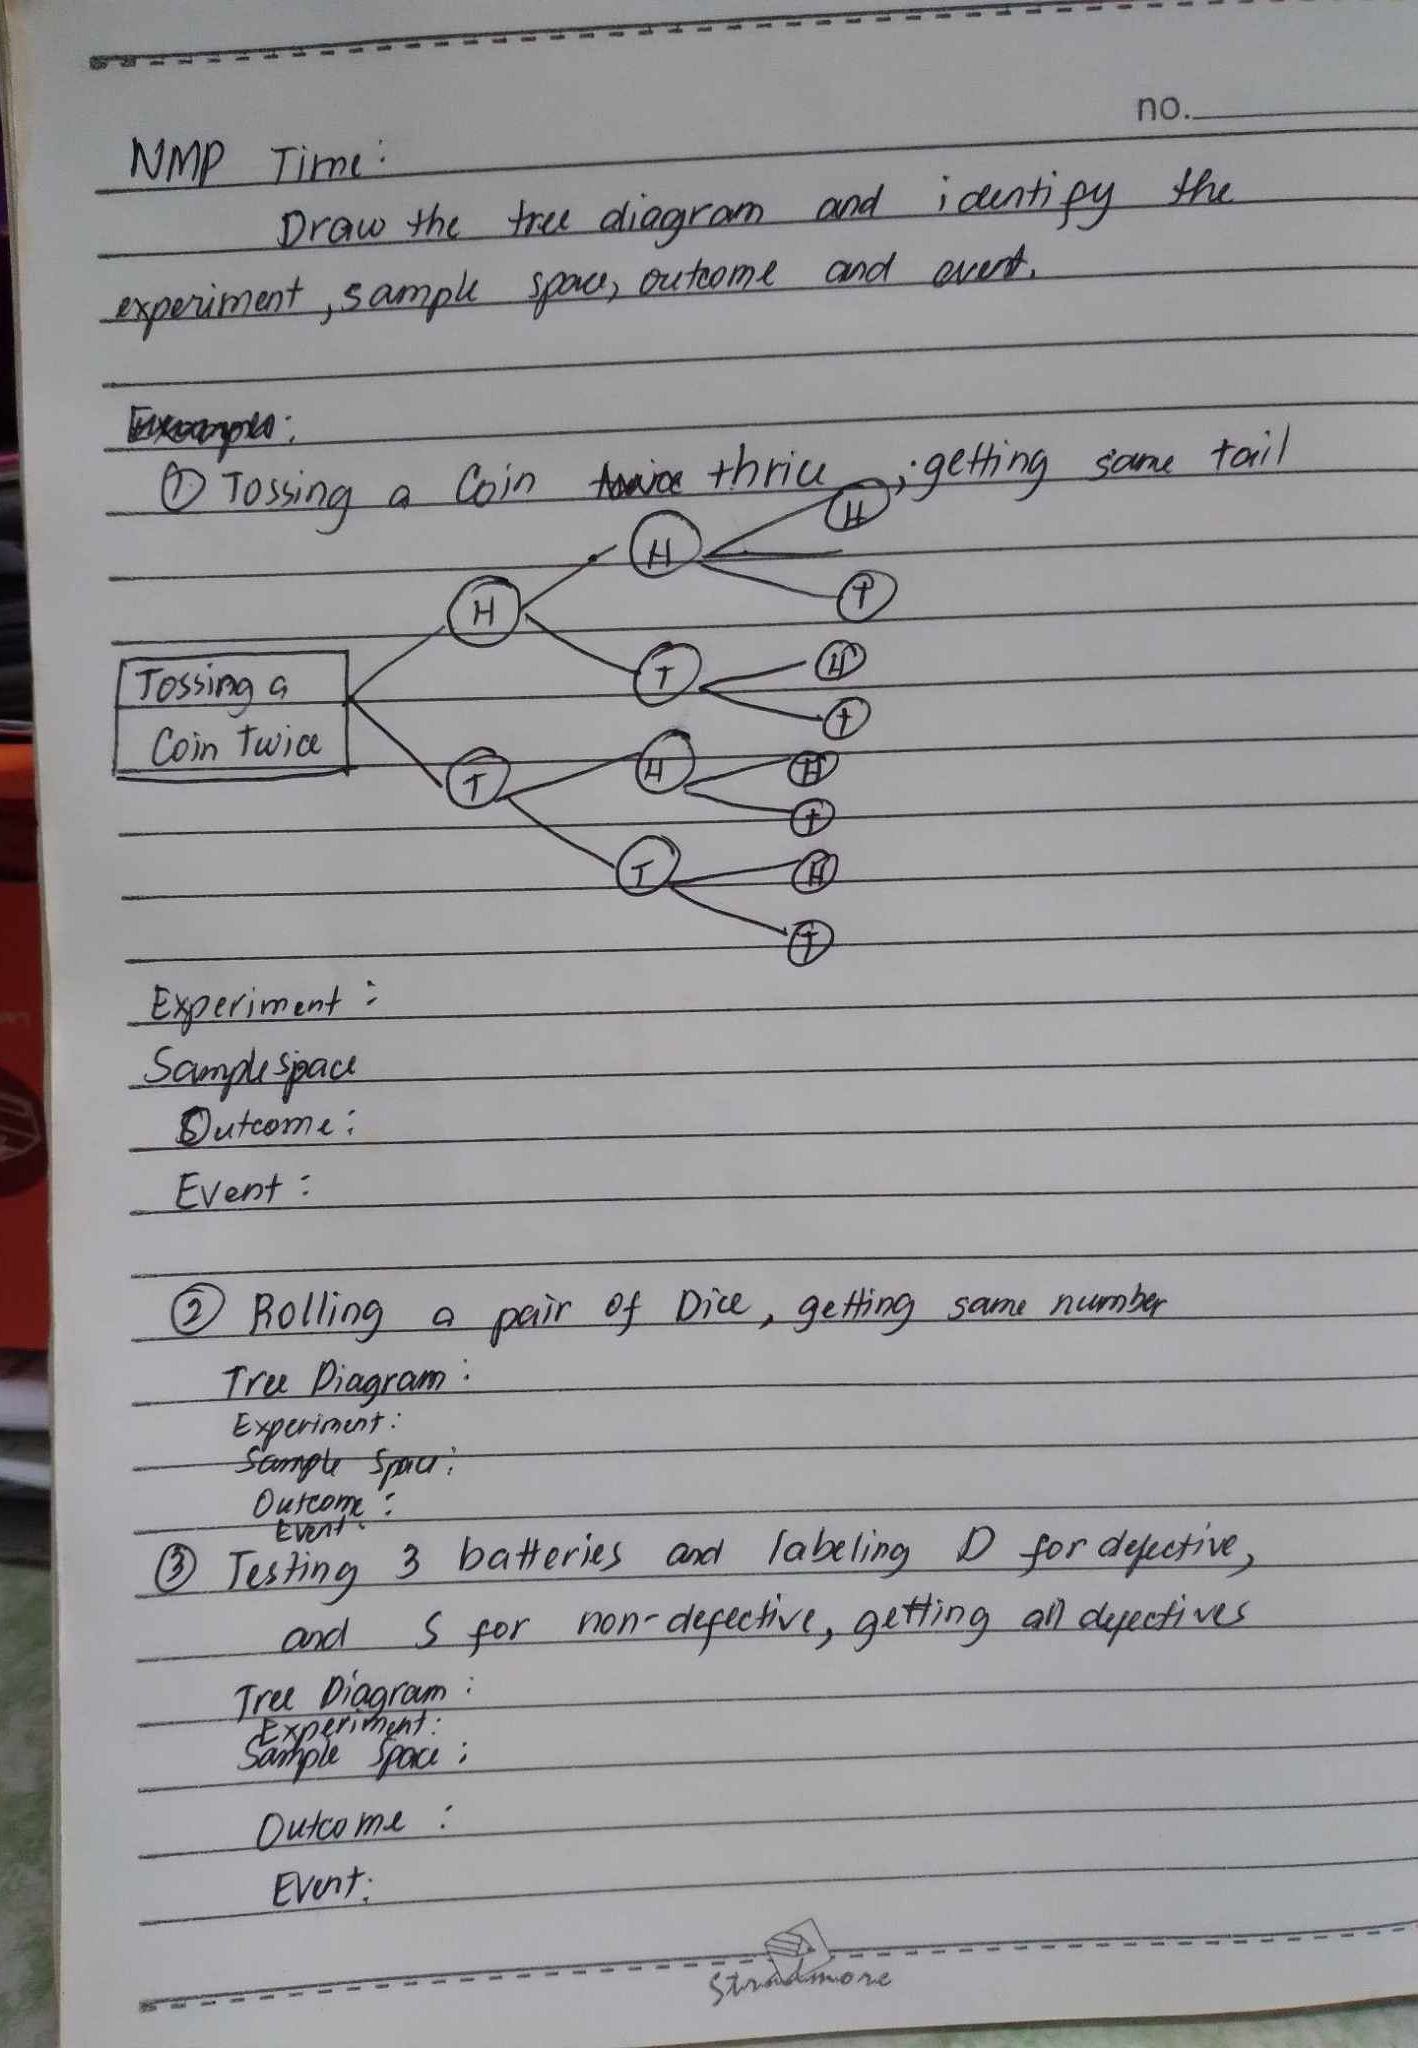 no.
NMP Time:
Draw the tree diagram and identify the
experiment, sample space, outcome and event.
Example:
① Tossing a Coin twice thrice ; getting same tail
H
H
H
T
T
H
T
Tossing a
Coin Twice
T
H
H
T
T
H
T
Experiment:
Sample space
Outcome:
Event:
② Rolling a pair of Dice, getting same number
Tree Diagram:
Experiment:
Sample Space:
Outcome:
Event:
③ Testing 3 batteries and labeling D for defective,
and S for non-defective, getting all defectives
Tree Diagram:
Experiment:
Sample Space:
Outcome:
Event:
Stradmore